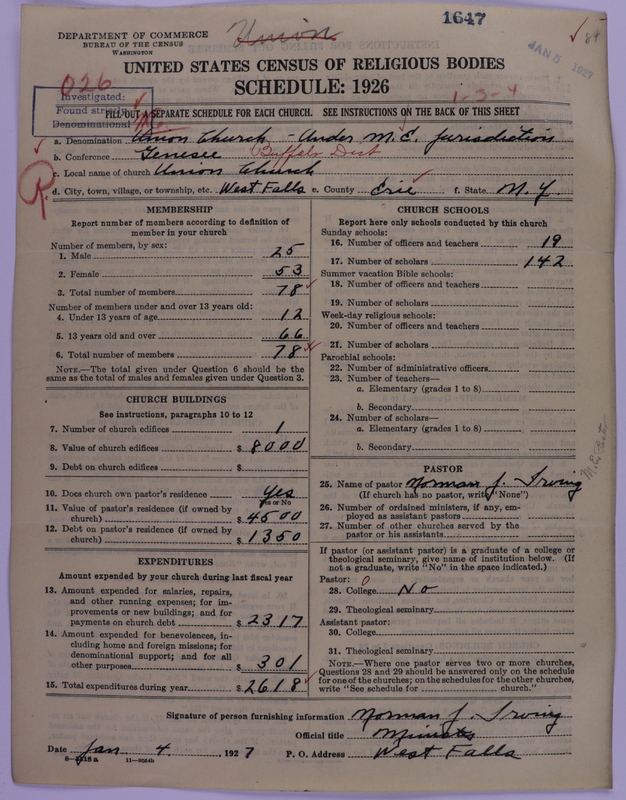 1647
DEPARTMENT OF COMMERCE
BUREAU OF THE CENSUS
WASHINGTON
Union
84
JAN 5 1927
UNITED STATES CENSUS OF RELIGIOUS BODIES
SCHEDULE: 1926
026
1-3-4
Investigated:
Found strictly
Denominational
FILL OUT A SEPARATE SCHEDULE FOR EACH CHURCH. SEE INSTRUCTIONS ON THE BACK OF THIS SHEET
a. Denomination Union Church - Under M.E. jurisdiction
b. Conference Genesee Buffalo Dist
c. Local name of church Union Church
R.
d. City, town, village, or township, etc. West Falls e. County Erie f. State N.Y.
MEMBERSHIP
Report number of members according to definition of
member in your church
Number of members, by sex:
1. Male 25
2. Female 53
3. Total number of members 78
Number of members under and over 13 years old:
4. Under 13 years of age 12
5. 13 years old and over 66
6. Total number of members 78
NOTE.—The total given under Question 6 should be the
same as the total of males and females given under Question 3.
CHURCH BUILDINGS
See instructions, paragraphs 10 to 12
7. Number of church edifices 1
8. Value of church edifices $ 8000
9. Debt on church edifices $
10. Does church own pastor's residence Yes
Yes or No
11. Value of pastor's residence (if owned by
church) $ 4500
12. Debt on pastor's residence (if owned by
church) $ 1350
EXPENDITURES
Amount expended by your church during last fiscal year
13. Amount expended for salaries, repairs,
and other running expenses; for im-
provements or new buildings; and for
payments on church debt $ 2317
14. Amount expended for benevolences, in-
cluding home and foreign missions; for
denominational support; and for all
other purposes $ 301
15. Total expenditures during year $ 2618
CHURCH SCHOOLS
Report here only schools conducted by this church
Sunday schools:
16. Number of officers and teachers 19
17. Number of scholars 142
Summer vacation Bible schools:
18. Number of officers and teachers
19. Number of scholars
Week-day religious schools:
20. Number of officers and teachers
21. Number of scholars
Parochial schools:
22. Number of administrative officers
23. Number of teachers—
a. Elementary (grades 1 to 8)
b. Secondary
24. Number of scholars—
a. Elementary (grades 1 to 8)
b. Secondary
PASTOR
25. Name of pastor Norman J. Irving
(If church has no pastor, write "None")
26. Number of ordained ministers, if any, em-
ployed as assistant pastors
27. Number of other churches served by the
pastor or his assistants
If pastor (or assistant pastor) is a graduate of a college or
theological seminary, give name of institution below. (If
not a graduate, write "No" in the space indicated.)
Pastor: 0
28. College No
29. Theological seminary
Assistant pastor:
30. College
31. Theological seminary
NOTE.—Where one pastor serves two or more churches,
Questions 28 and 29 should be answered only on the schedule
for one of the churches; on the schedules for the other churches,
write "See schedule for church."
Signature of person furnishing information Norman J. Irving
Official title Minister
Date Jan 4 1927 P. O. Address West Falls